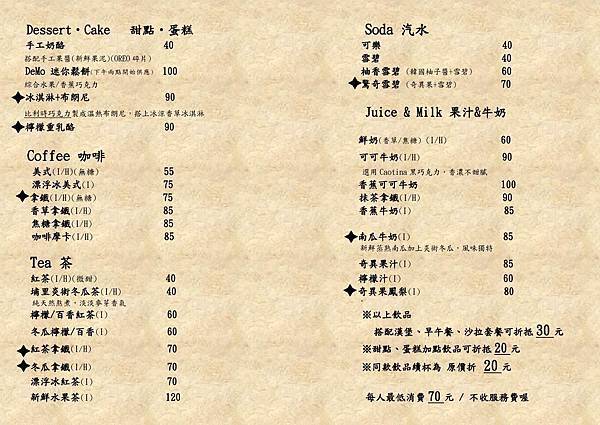 Dessert・Cake 甜點・蛋糕
手工奶酪 40
搭配手工果醬(新鮮果泥)(OREO碎片)
DeMo 迷你鬆餅(下午兩點開始供應) 100
綜合水果/香蕉巧克力
冰淇淋+布朗尼 90
比利時巧克力製成溫熱布朗尼，搭上冰涼香草冰淇淋
檸檬重乳酪 90
Coffee 咖啡
美式(I/H)(無糖) 55
漂浮冰美式(I) 75
拿鐵(I/H)(無糖) 75
香草拿鐵(I/H) 85
焦糖拿鐵(I/H) 85
咖啡摩卡(I/H) 85
Tea 茶
紅茶(I/H)(微甜) 40
埔里炭術冬瓜茶(I/H) 40
純天然熬煮，淡淡麥芽香氣
檸檬/百香紅茶(I) 60
冬瓜檸檬/百香(I) 60
紅茶拿鐵(I/H) 70
冬瓜拿鐵(I/H) 70
漂浮冰紅茶(I) 70
新鮮水果茶(I) 120
Soda 汽水
可樂 40
雪碧 40
柚香雪碧 (韓國柚子醬+雪碧) 60
驚奇雪碧 (奇異果+雪碧) 70
Juice & Milk 果汁&牛奶
鮮奶(香草/焦糖) (I/H) 60
可可牛奶(I/H) 90
選用 Caotina 黑巧克力，香濃不甜膩
香蕉可可牛奶 100
抹茶拿鐵(I/H) 90
香蕉牛奶(I) 85
南瓜牛奶(I) 85
新鮮蒸熟南瓜加上炭術冬瓜，風味獨特
奇異果汁(I) 85
檸檬汁(I) 60
奇異果鳳梨(I) 80
※以上飲品
搭配漢堡、早午餐、沙拉套餐可折抵 30 元
※甜點、蛋糕加點飲品可折抵 20 元
※同款飲品續杯為 原價折 20 元
每人最低消費 70 元 / 不收服務費喔